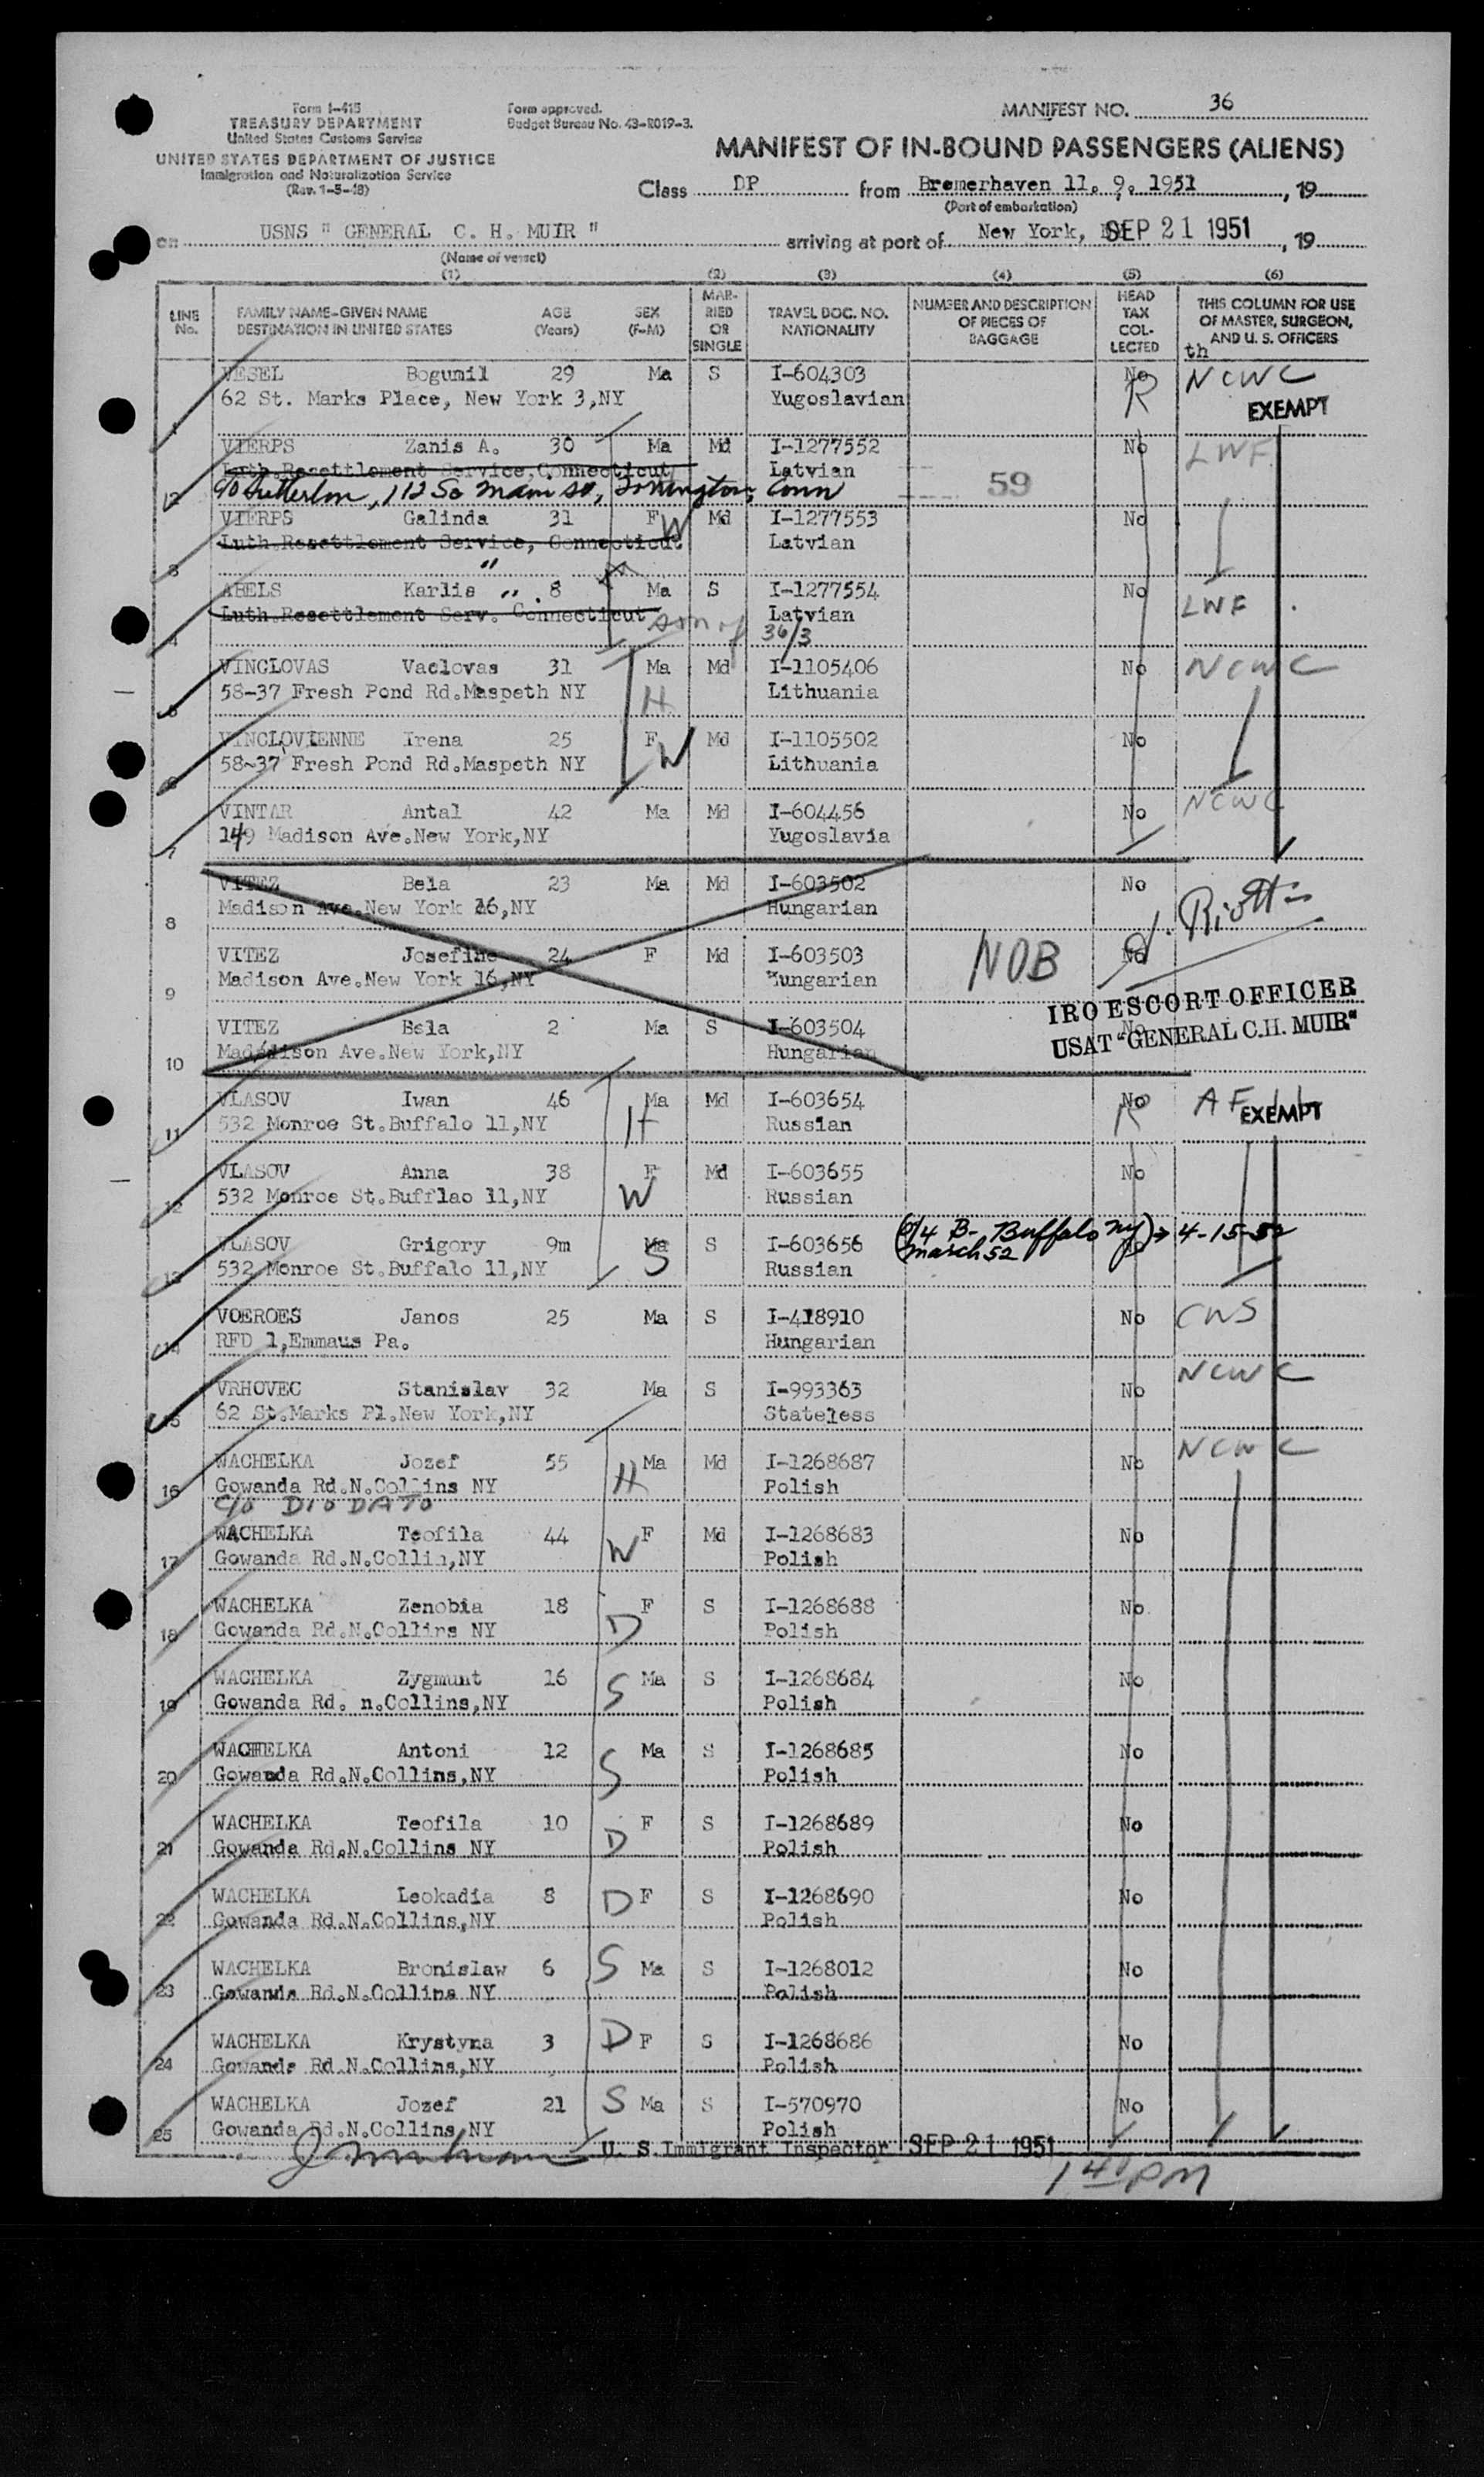 Form I-415
TREASURY DEPARTMENT
United States Customs Service
UNITED STATES DEPARTMENT OF JUSTICE
Immigration and Naturalization Service
(Rev. 1-5-48)
Form approved.
Budget Bureau No. 43-R019-3.
MANIFEST NO. 36
MANIFEST OF IN-BOUND PASSENGERS (ALIENS)
Class DP from Bremerhaven 11. 9. 1951, 19
(Port of embarkation)
on USNS " GENERAL C. H. MUIR " arriving at port of New York, SEP 21 1951, 19
(Name of vessel)
(1) (2) (3) (4) (5) (6)
LINE No. FAMILY NAME-GIVEN NAME DESTINATION IN UNITED STATES AGE (Years) SEX (F-M) MARRIED OR SINGLE TRAVEL DOC. NO. NATIONALITY NUMBER AND DESCRIPTION OF PIECES OF BAGGAGE HEAD TAX COLLECTED THIS COLUMN FOR USE OF MASTER, SURGEON, AND U. S. OFFICERS
th
VESEL Bogumil 29 Ma S I-604303 No R NCWC
62 St. Marks Place, New York 3,NY Yugoslavian EXEMPT
1
VIERPS Zanis A. 30 Ma Md I-1277552 No LWF
Luth.Resettlement Service.Connecticut Latvian 59
2 c/o 112 So Main St, Torrington, Conn
VIERPS Galinda 31 F W Md I-1277553 No
Luth.Resettlement Service, Connecticut Latvian
3 "
ABELS Karlis " 8 Ma S I-1277554 No
Luth.Resettlement Serv. Connecticut Latvian LWF
4 son of 36/3
VINCLOVAS Vaclovas 31 Ma Md I-1105406 No NCWC
5 58-37 Fresh Pond Rd.Maspeth NY H Lithuania
VINCLOVIENNE Irena 25 F W Md I-1105502 No
6 58-37 Fresh Pond Rd.Maspeth NY Lithuania
VINTAR Antal 42 Ma Md I-604456 No NCWC
7 149 Madison Ave.New York,NY Yugoslavia
VITEZ Bela 23 Ma Md I-603502 No
8 Madison Ave.New York 16,NY Hungarian
VITEZ Josefine 24 F Md I-603503 NOB No
9 Madison Ave.New York 16,NY Hungarian
IRO ESCORT OFFICER
VITEZ Bela 2 Ma S I-603504 No
USAT "GENERAL C.H. MUIR"
10 Madadison Ave.New York,NY Hungarian
VLASOV Iwan 46 Ma Md I-603654 No R EXEMPT
11 532 Monroe St.Buffalo 11,NY H Russian
VLASOV Anna 38 F Md I-603655 No
12 532 Monroe St.Bufflao 11,NY W Russian
VLASOV Grigory 9m Ma S I-603656 Buffalo NY) 4-15-52
March 52
13 532 Monroe St.Buffalo 11,NY S Russian
VOEROES Janos 25 Ma S I-418910 No CWS
14 RFD 1,Emmaus Pa. Hungarian
VRHOVEC Stanislav 32 Ma S I-993363 No NCWC
15 62 St.Marks Pl.New York,NY Stateless
WACHELKA Jozef 55 Ma Md I-1268687 No NCWC
16 Gowanda Rd.N.Collins NY H Polish
c/o DIODATO
WACHELKA Teofila 44 F Md I-1268683 No
17 Gowanda Rd.N.Collin,NY W Polish
WACHELKA Zenobia 18 F S I-1268688 No
18 Gowanda Rd.N.Collins NY D Polish
WACHELKA Zygmunt 16 Ma S I-1268684 No
19 Gowanda Rd. n.Collins,NY S Polish
WACHELKA Antoni 12 Ma S I-1268685 No
20 Gowanda Rd.N.Collins,NY S Polish
WACHELKA Teofila 10 F S I-1268689 No
21 Gowanda Rd.N.Collins NY D Polish
WACHELKA Leokadia 8 D F S I-1268690 No
22 Gowanda Rd.N.Collins,NY Polish
WACHELKA Bronislaw 6 S Ma S I-1268012 No
23 Gowanda Rd.N.Collins NY Polish
WACHELKA Krystyna 3 D F S I-1268686 No
24 Gowanda Rd N.Collins,NY Polish
WACHELKA Jozef 21 S Ma S I-570970 No
25 Gowanda Rd.N.Collins,NY Polish
U. S. Immigrant Inspector SEP 21 1951
PM